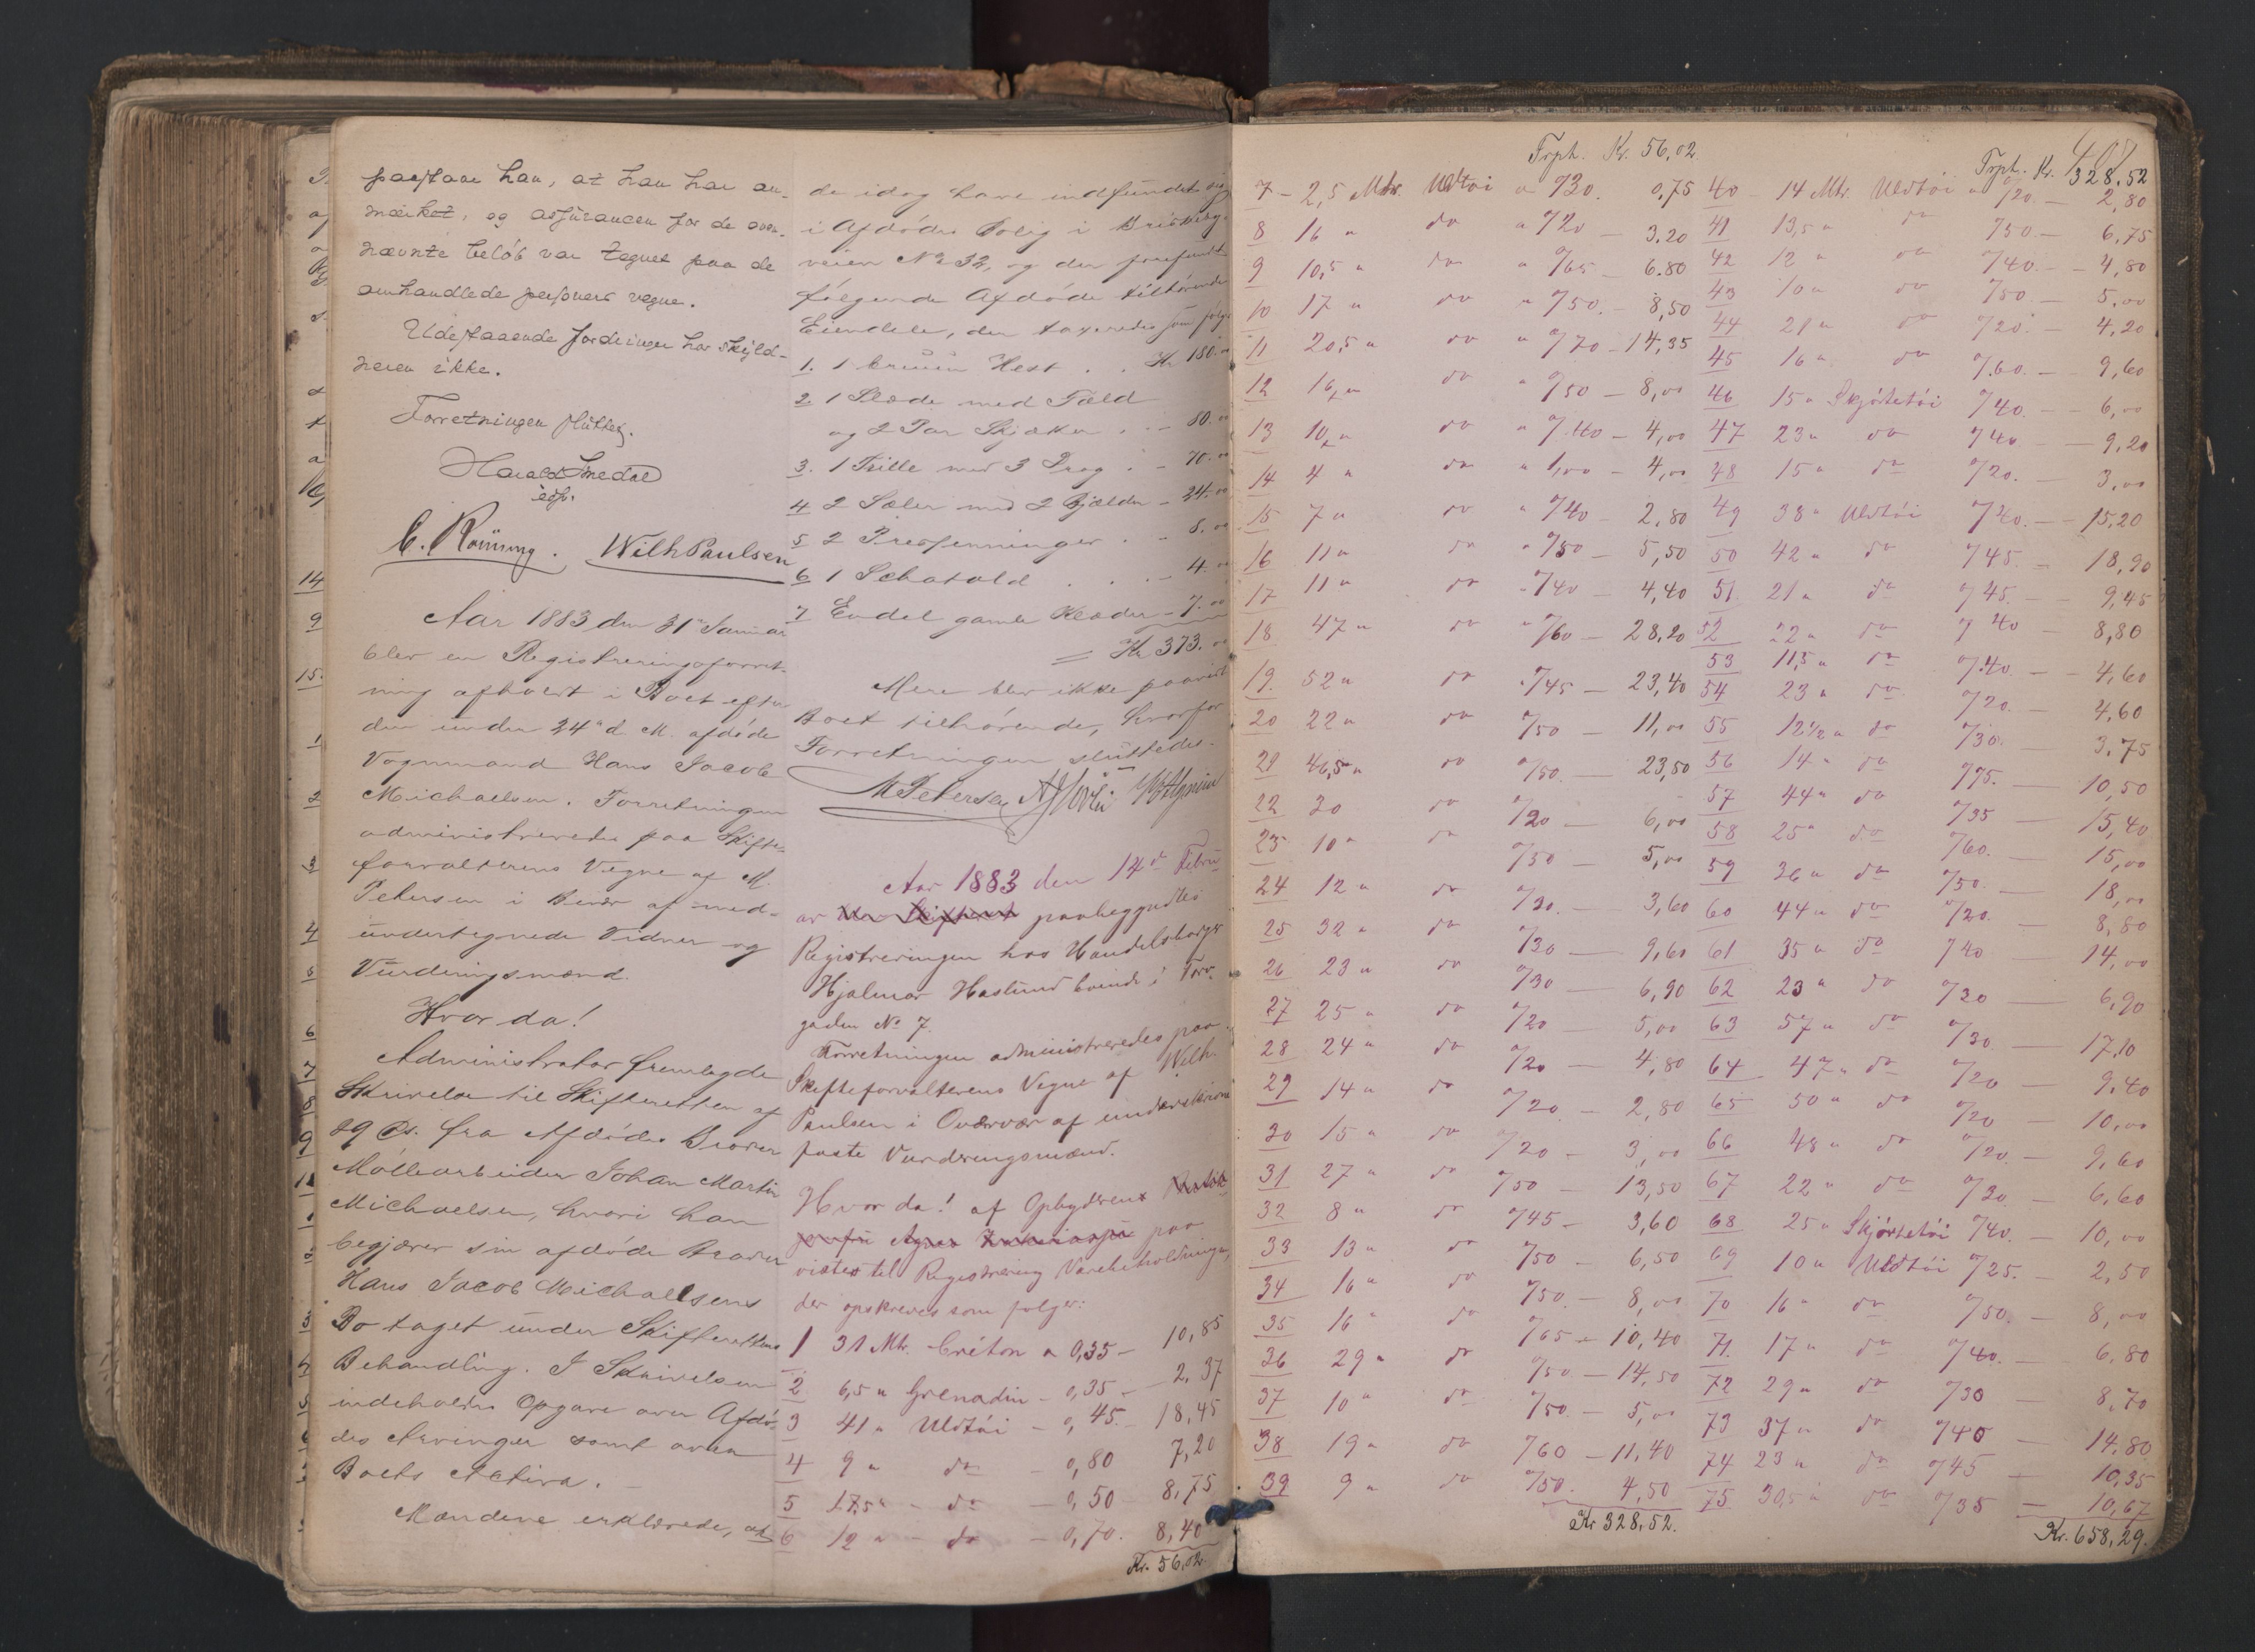 paastaar han, at han har an-
mærket, og assurancen for de oven-
nævnte beløb var tegnet paa de
omhandlede personers vegne.
Udestaaende fordringer har skyld-
neren ikke.
Forretningen sluttet.
Harald Smedal
C. Rönning. Wilh Paulsen
Aar 1883 den 31te Januar
blev en Registreringsforret-
ning afholdt i Boet efter
den under 24de d. M. afdøde
Vognmand Hans Jacob
Michaelsen. Forretningen
administreredes paa Skifte-
forvalterens Vegne af M.
Petersen i Overvær af med-
undertegnede Vidner og
Vurderingsmænd.
Hvor da!
Administrator fremlagde
Skrivelse til Skifteretten af
29 ds. fra Afdødes Broder
Møllearbeider Johan Martin
Michaelsen, hvori han
begjærer sin afdøde Broder
Hans Jacob Michaelsens
Bo taget under Skifterettens
Behandling. I Skrivelsen
indeholdes Opgave over Afdø-
des Arvinger samt over
Boets Activa.
Mændene erklærede, at
de idag have indfundet sig
i Afdødes Bolig i Briskeby-
veien No 32, og der forefundt
følgende Afdøde tilhørende
Eiendele, der taxeredes som følger
1. 1 bruun Hest . . Kr 180.00
2. 1 Slæde med Fæld
og 2 Par Skjæker . - 80.00
3. 1 Trille med 3 Drag . - 70.00
4 2 Sæler med 2 Bjælder - 24.00
5 2 Presenninger . - 8.00
6 1 Schatold . . . - 4.00
7 Endel gamle Klæder - 7.00
= Kr 373.00
Mere blev ikke paavist
Boet tilhørende, hvorfor
Forretningen sluttedes.
M Petersen
Aar 1883 den 14de Febru-
ar paabegyndtes
Registreringen hos Handelsborger
Hjalmar Haslund boende i Torv-
gaden No 7.
Forretningen administreredes paa
Skifteforvalterens Vegne af Wilh.
Paulsen i Overvær af underskrevne
faste Vurderingsmænd.
Hvor da! af Opbyderen
paa
vistes til Registrering Varebeholdningen,
der opskreves som følger:
1 31 Mtr. Créton a 0,35 - 10,85
2 6,5 " Grenadin - 0,35 - 2.37
3 41 " Uldtøi - 0,45 - 18,45
4 9 " do - 0,80 7,20
5 17,5 " - do - 0,50 8,75
6 12 " - do - 0,70. 8,40
Kr. 56,02.
Frph. Kr. 56,02
7 - 2,5 Mtr Uldtøi a %30. 0,75
8 16 " do " %20 - 3.20
9 10,5 " do " %65 - 6.80
10 17 " do " %50. - 8,50
11 20,5 " do " %70 - 14,35
12 16 " do " %50 - 8,00
13 10 " do " %40 - 4,00
14 4 " do " 1,00 - 4,00
15 7 " do " %40 - 2,80
16 11 " do " %50 - 5,50
17 11 " do " %40 - 4,40
18 47 " do " %60 - 28,20
19. 52 " do " %45 - 23,40
20 22 " do %50 - 11,00
21 46,5 " do %50. - 23,50
22 30 do %20 - 6,00
23 10 " do %50 - 5,00
24 12 " do %30. - 3,60
25 32 " do %30 - 9,60
26 23 " do %30 - 6,90
27 25 " do %20 - 5,00
28 24 " do %20 - 4,80
29 14 " do %20 - 2,80
30 15 " do %20 - 3,00
31 27 " do %50 - 13,50
32 8 " do %45 - 3,60
33 13 " do %50 - 6,50
34 16 " do %50 - 8,00
35 16 " do %65 - 10,40
36 29 " do %50 - 14,50
37 10 " do %50 - 5,00
38 19 " do %60 - 11,40
39 9 " do %50. 4,50
Kr 328,52.
408
Frph. Kr. 328,52
40 14 Mtr. Uldtøi a %20. - 2,80
41 13,5 " do %50 - 6,75
42 12 " do %40. - 4,80
43 10 " do %50 - 5,00
44 21 " do %20. - 4,20
45 16 " do %60. - 9,60
46 15 " Skjørtetøi %40. - 6,00
47 23 " do %40 - 9,20
48 15 " do %20. - 3,00
49 38 " Uldtøi %40. - 15,20
50 42 " do %45. - 18,90
51 21 " do %45. - 9,45
52 22 " do %40 - 8,80
53 11,5 " do %40. - 4,60
54 23 " do %20. - 4,60
55 12½ " do %30. - 3,75
56 14 " do %75. - 10,50
57 44 " do %35 - 15,40
58 25 " do %60. - 15,00
59 36 " do %50. - 18,00
60 44 " do %20. - 8,80
61 35 " do %40 - 14,00
62 23 " do %30 - 6,90
63 57 " do %30 - 17,10
64 47 " do %20 - 9,40
65 50 " do %20 - 10,00
66 48 " do %20 - 9,60
67 22 " do %30 - 6,60
68 25 " Skjørtetøi %40. - 10,00
69 10 " Uldtøi %25. - 2,50
70 16 " do %50. - 8,00
71. 17 " do %40. - 6,80
72 29 " do %30 - 8,70
73 37 " do %40 - 14,80
74 23 " do %45 - 10,35
75 30,5 " do %35 - 10,67
Kr. 658,29.